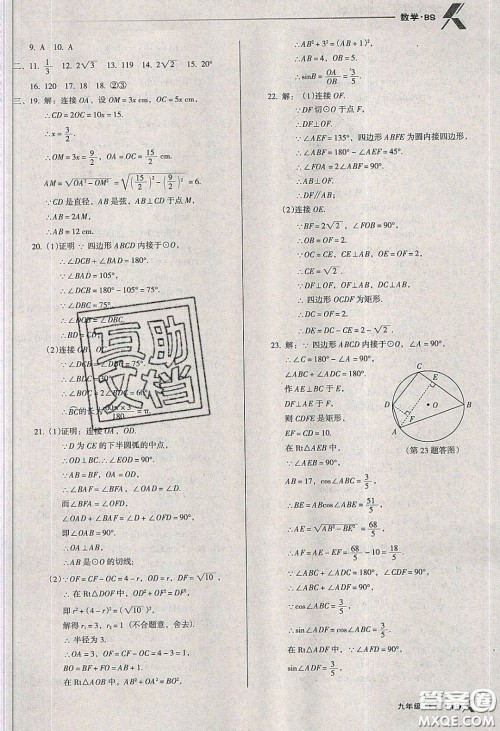 数学·BS
9. A  10. A
二、11. 1/3  12. 2√3  13. 119  14. 2√2  15. 20°
16. 120  17. 18  18. ②③
三、19. 解：连接OA，设OM=3x cm，OC=5x cm，
∴CD=2OC=10x=15.
∴x=3/2.
∴OM=3x=9/2，OA=OC=15/2.
AM=√(OA²-OM²)=√((15/2)²-(9/2)²)=6.
∵CD是直径，AB是弦，AB⊥CD于点M，
∴AB=2AM.
∴AB=12 cm.
20. (1)证明∵四边形ABCD内接于⊙O，
∴∠DCB+∠BAD=180°.
∵∠BAD=105°，
∴∠DCB=75°.
∵∠DBC=75°，
∴∠DCB=∠DBC.
∴BD=CD.
(2)连接OB，OC
∵∠DCB=∠DBC=75°，
180
=π.
21. (1)证明：连接OA，OD.
∵D为CE的下半圆弧的中点，
∴∠FOD=90°.
∵AB=BF，OA=OD，
∴∠BAF=∠BFA，∠OAD=∠D=∠OAF.
而∠BFA=∠OFD，
∠OAD+∠BAF=∠D+∠BFA=90°，
即∠OAB=90°.
∴OA⊥AB.
∴AB是⊙O的切线；
(2)∵OF=CF-OC=4-r，OD=r，DF=√10，
∴在Rt△DOF中，OD²+OF²=DF²，
即r²+(4-r)²=(√10)²，
解得r₁=3，r₂=1（不合题意，舍去）.
∴半径为3.
∴OA=3，OF=CF-OC=4-3=1，
BO=BF+FO=AB+1.
在Rt△AOB中，AB²+OA²=OB²，
∴AB²+3²=(AB+1)².
∴AB=4，OB=5.
∴sinB=OA/OB=3/5.
22. 解：(1)连接OF.
∵DF切⊙O于点F，
∴DF⊥OF.
∵∠AEF=135°，四边形ABFE为圆内接四边形，
∴∠ABF=180°-∠AEF=45°.
∴∠AOF=2∠ABF=90°.
∴AB⊥OF.
∴DF∥AB.
(2)连接OE.
∵BF=2√2，∠FOB=90°，
∴OB=OF=2.
∴OE=OF=2.
∵OC=CE，
∴CE=√2.
∵∠DCO=∠COF=∠DFO=90°，
∴四边形OCDF为矩形.
∴CD=OF=2.
∴DE=2-√2.
23. 解：∵四边形ABCD内接于⊙O，
∴∠C=180°-∠A=90°.
作AE⊥BC于E，
DF⊥AE于F，
则CDFE是矩形，
EF=CD=10.
在Rt△AEB中，
AB=17，cos∠ABC=3/5，
∴BE=AB·cos∠ABE=51/5.
∴AE=√(AB²-BE²)=68/5.
∴AF=AE-EF=68/5-10=18/5.
∵∠ABC+∠ADC=180°，
∠CDF=90°，
∴∠ABC+∠ADF=90°.
∵cos∠ABC=3/5，
∴sin∠ADF=cos∠ABC=3/5.
在Rt△ADF中，∵∠AFD=90°，
sin∠ADF=3/5，
C
E
D
O
B
F
A
（第23题答图）
互助
文档
九年级
答案圈
MXQE.COM